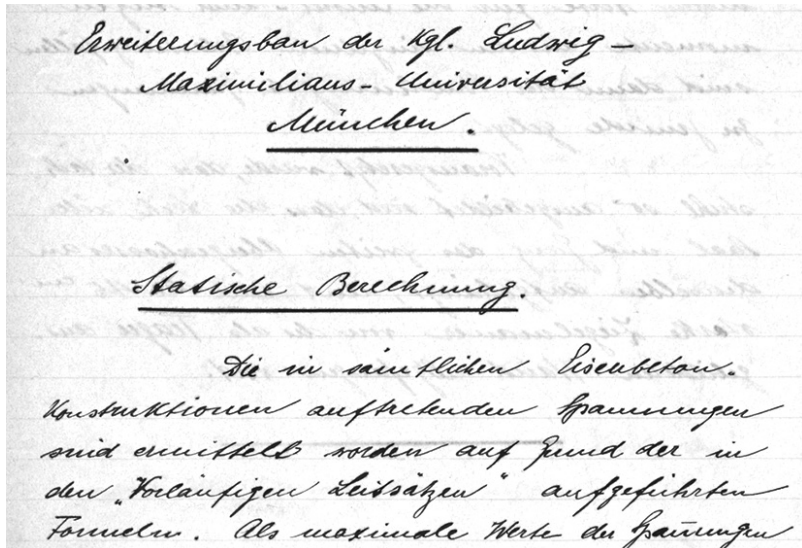 Erweiterungsbau der Kgl. Ludwig-
Maximilians-Universität
München.
Statische Berechnung.
Die in sämtlichen Eisenbeton-
Konstruktionen auftretenden Spannungen
sind ermittelt worden auf Grund der in
den „Vorläufigen Leitsätzen“ aufgeführten
Formeln. Als maximale Werte der Spannungen